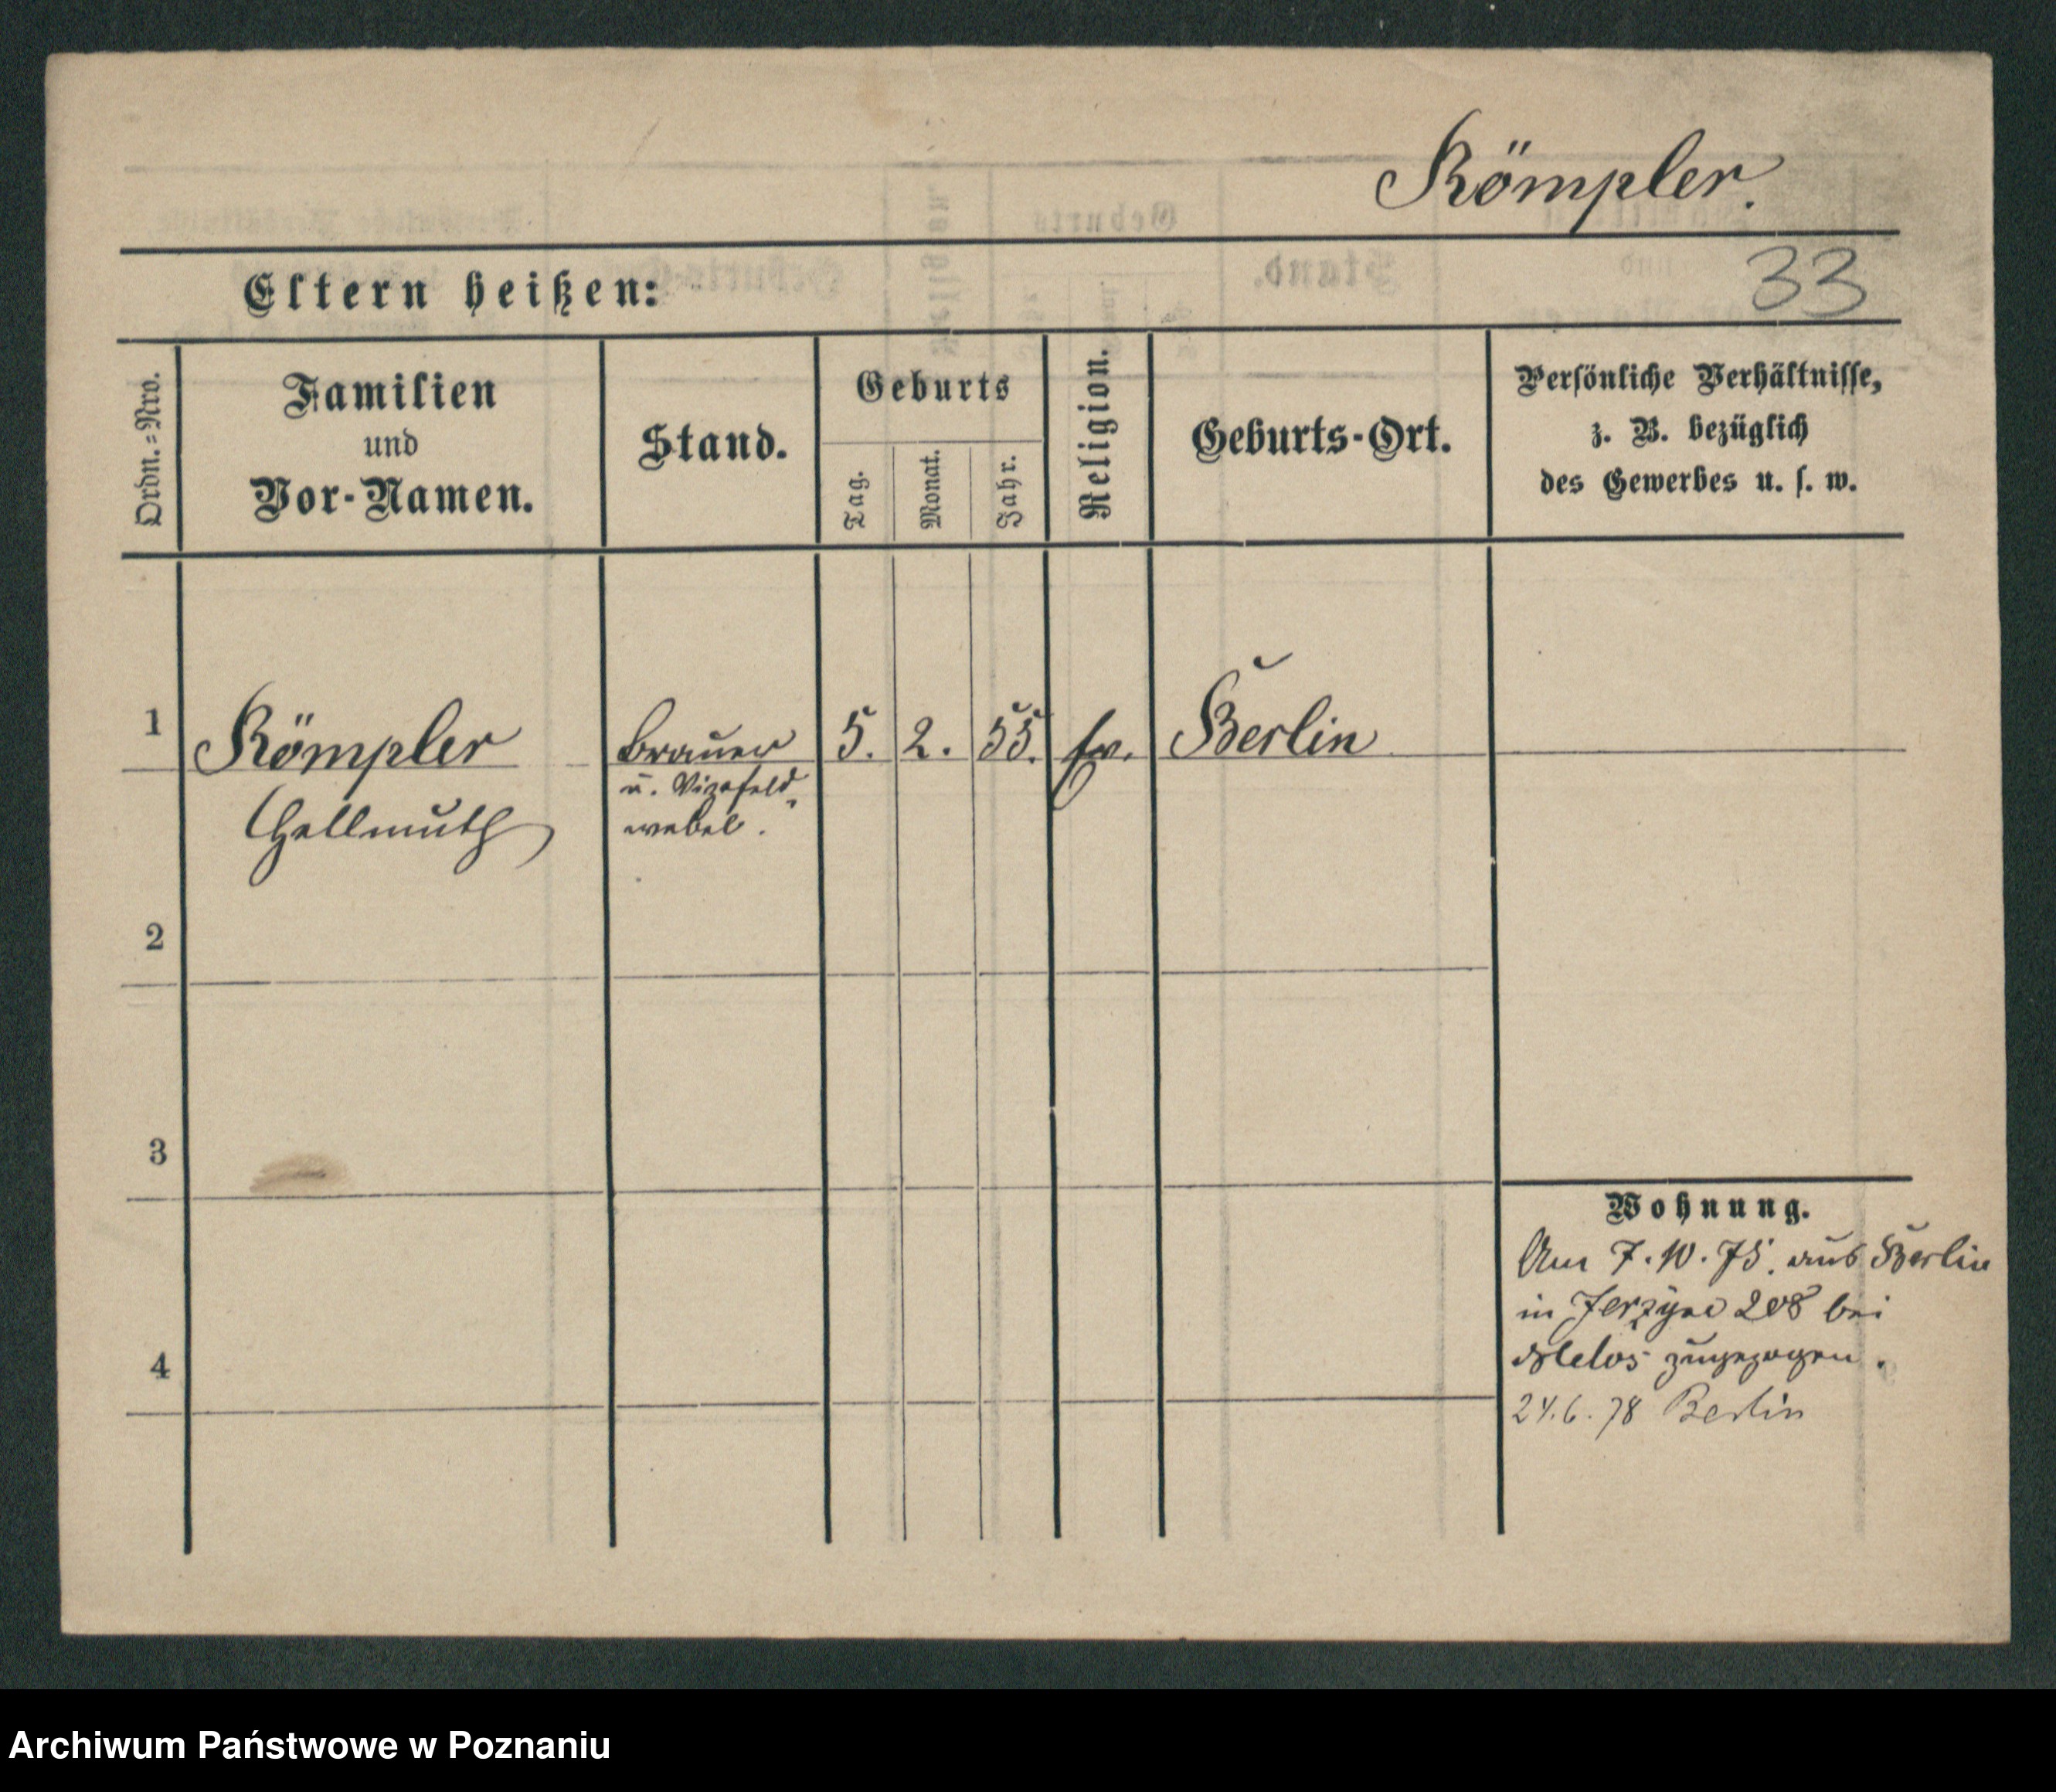 Römpler.
33
Eltern heißen:
Ordn.=Nro.
Familien
und
Vor-Namen.
Stand.
Geburts
Tag.
Monat.
Jahr.
Religion.
Geburts-Ort.
Persönliche Verhältnisse,
z. B. bezüglich
des Gewerbes u. s. w.
1
Römpler
Brauer
5.
2.
55.
ev.
Berlin
Hellmuth
u. Vizefeld-
webel.
2
3
4
Wohnung.
Am 7.10.75. aus Berlin
in Jerzyce 208 bei
zugezogen.
24.6.78 Berlin
Archiwum Państwowe w Poznaniu